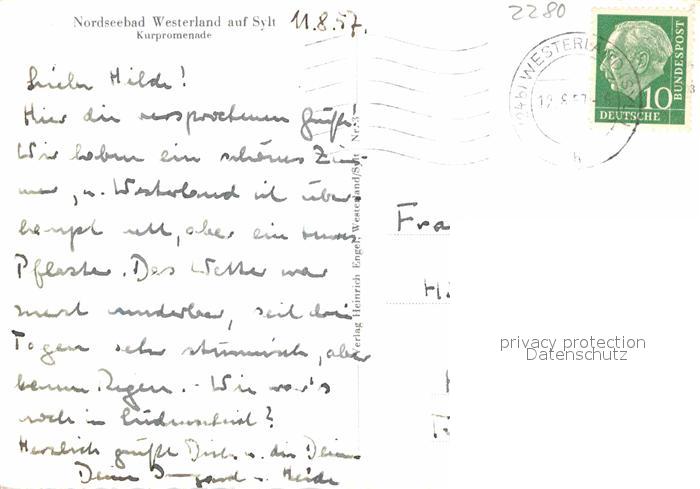 Nordseebad Westerland auf Sylt
Kurpromenade
11.8.57.
2280
WESTERLAND (SYLT)
DEUTSCHE
BUNDESPOST
10
Liebe Hilde!
Hier die versprochenen Grüße!
Wir haben ein schönes Zim-
mer, u. Westerland ist über-
haupt nett, aber ein teures
Pflaster. Das Wetter war
meist wunderbar, seit drei
Tagen sehr stürmisch, aber
keinen Regen. - Wie war's
noch in Lüdenscheid?
Herzlich grüßt Dich u. die Deinen
Deine Irmgard u. Heide
Verlag Heinrich Engel, Westerland/Sylt Nr. 3
Fra
privacy protection
Datenschutz